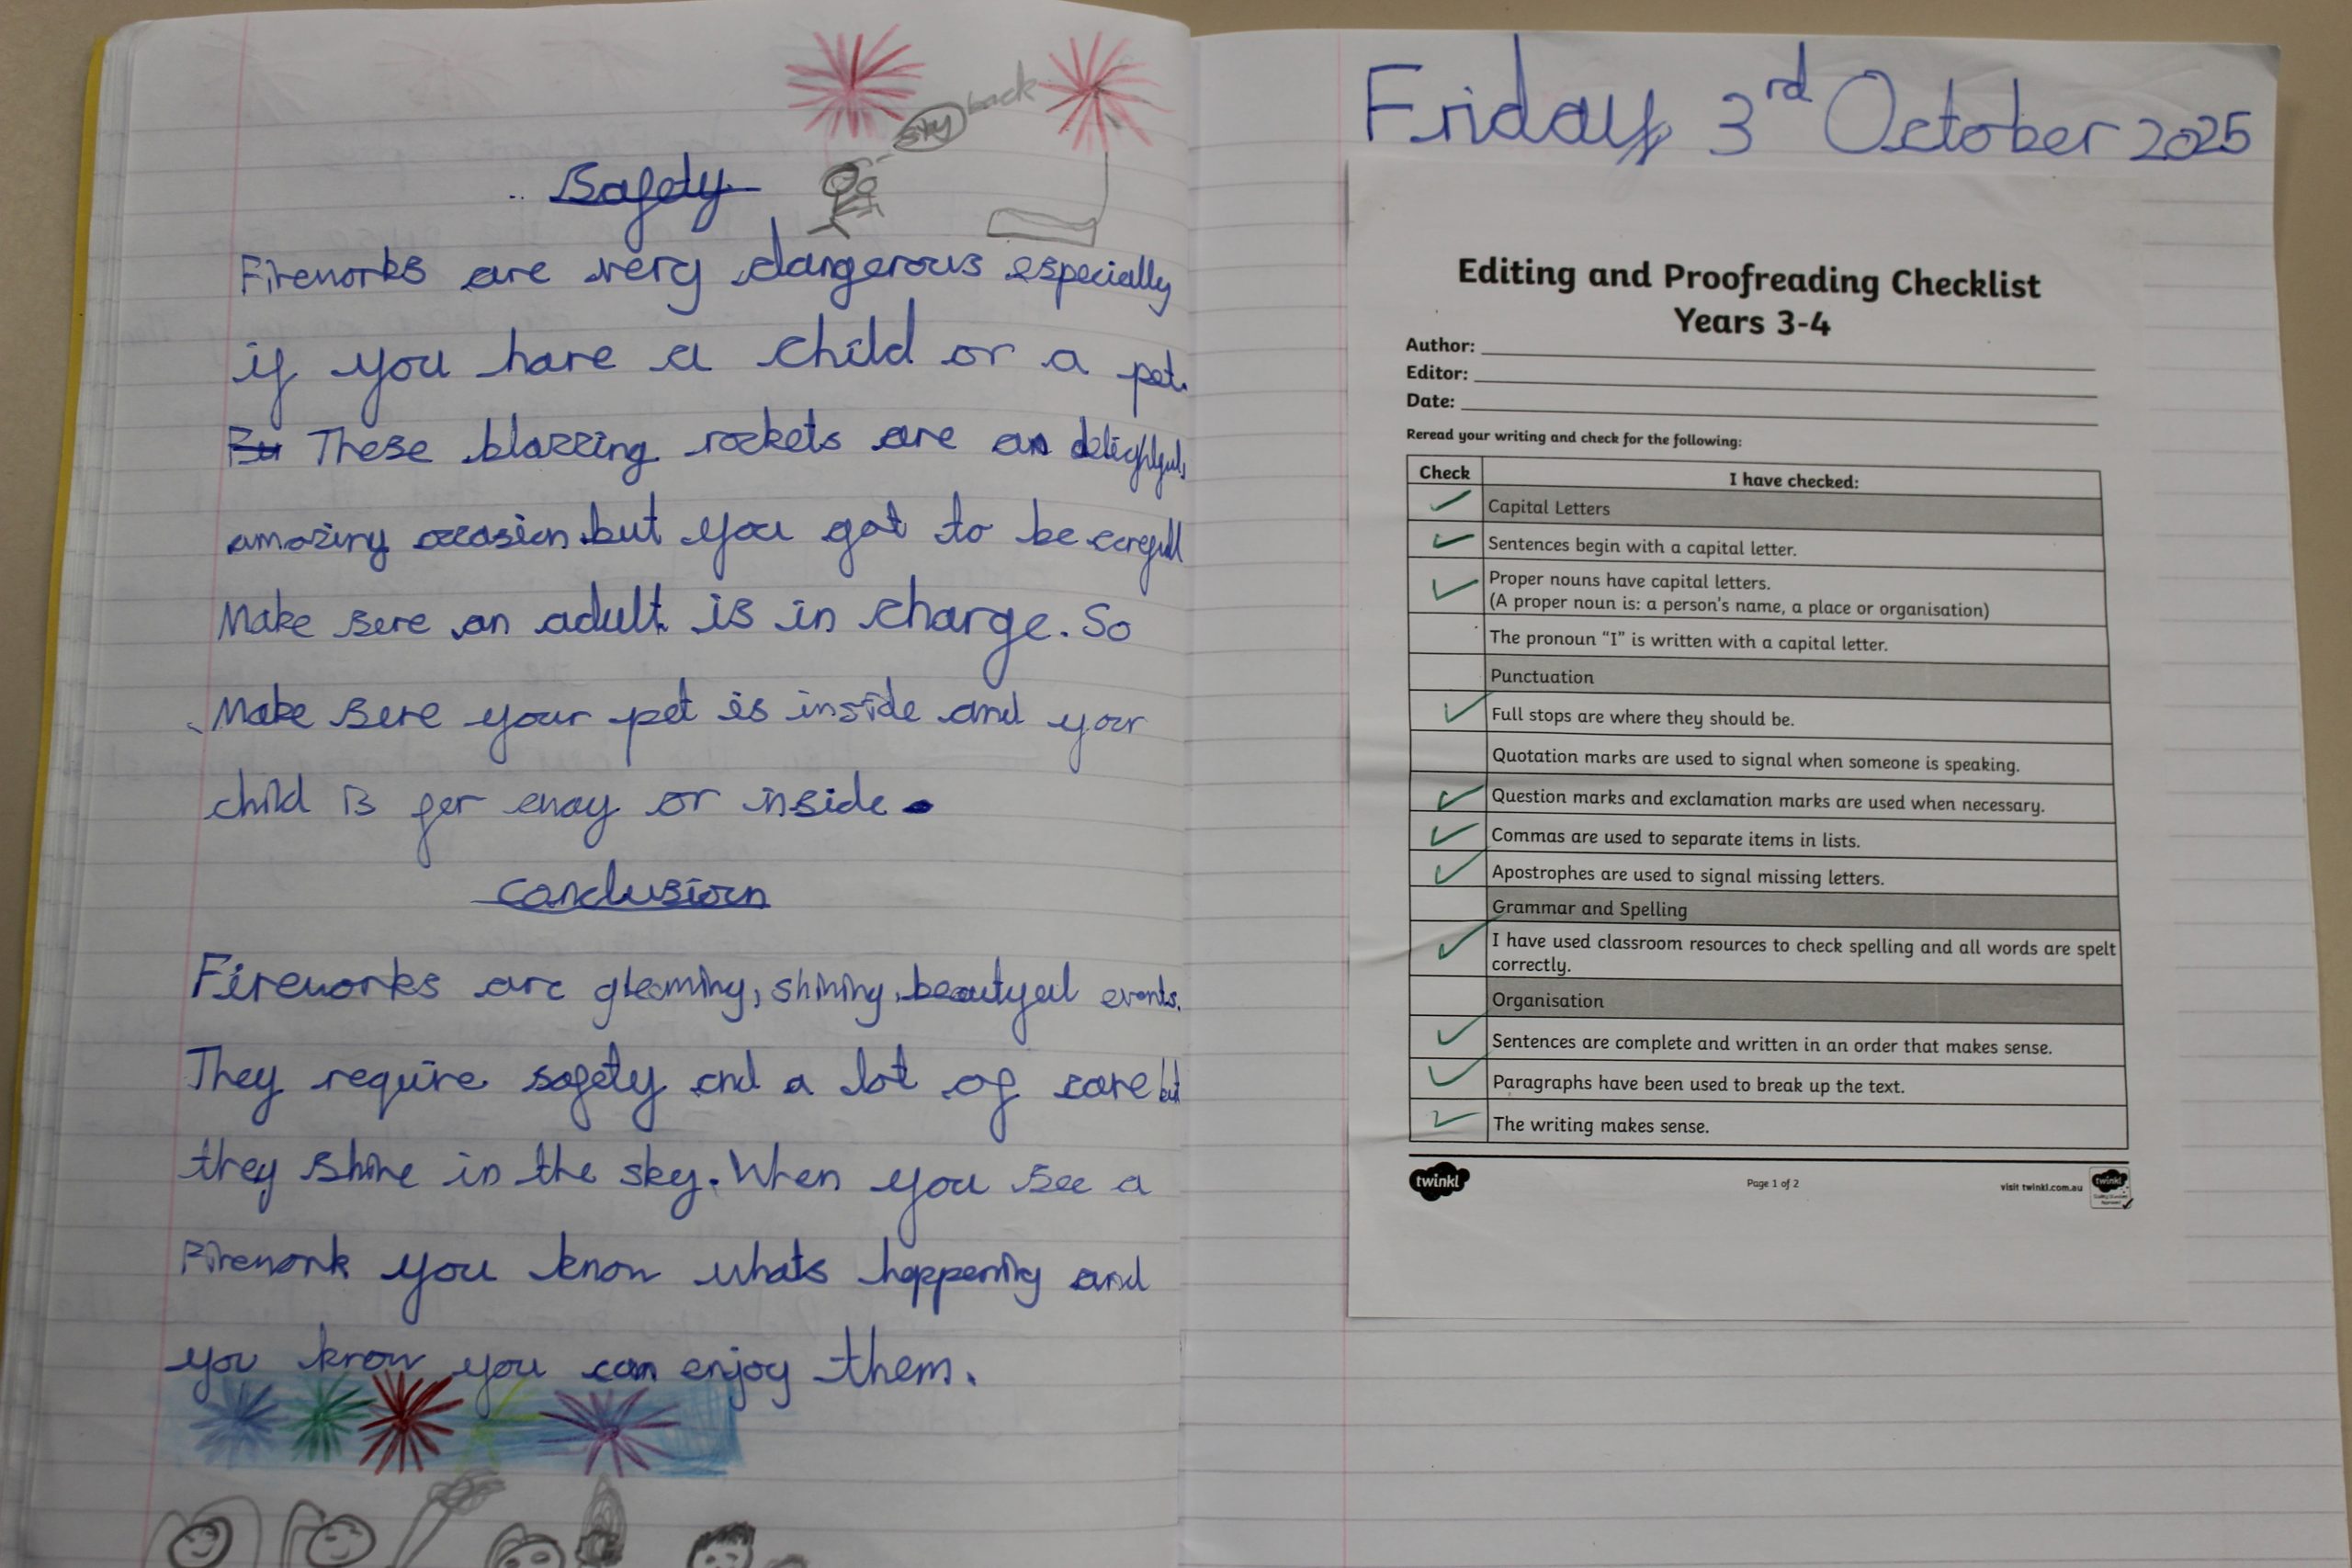 sky back
Safety
Fireworks are very dangerous especially
if you have a child or a pet.
Bu These blazzing rockets are an delightful,
amazing occasion but you got to be carefull
Make sere an adult is in charge. So
Make sere your pet is inside and your
child is fer eway or inside.
Conclusion
Fireworks are gleaming, shining, beautyful events.
They require safety and a lot of care but
they shine in the sky. When you see a
Firework you know whats happening and
you know you can enjoy them.
Friday 3rd October 2025
Editing and Proofreading Checklist
Years 3-4
Author:
Editor:
Date:
Reread your writing and check for the following:
Check I have checked:
Capital Letters
Sentences begin with a capital letter.
Proper nouns have capital letters.
(A proper noun is: a person's name, a place or organisation)
The pronoun "I" is written with a capital letter.
Punctuation
Full stops are where they should be.
Quotation marks are used to signal when someone is speaking.
Question marks and exclamation marks are used when necessary.
Commas are used to separate items in lists.
Apostrophes are used to signal missing letters.
Grammar and Spelling
I have used classroom resources to check spelling and all words are spelt
correctly.
Organisation
Sentences are complete and written in an order that makes sense.
Paragraphs have been used to break up the text.
The writing makes sense.
twinkl Page 1 of 2 visit twinkl.com.au twinkl